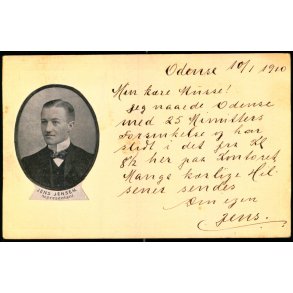 Odense 10/1 1910
Min kære Nusse!
Jeg naaede Odense
med 25 Minutters
Forsinkelse og har
slidt i det fra Kl
8k her paa Kontoret
Mange kærlige Hil-
sener sendes
Din egen
Jens.
JENS JENSEN